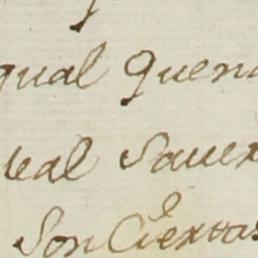 qual quen
eal saver
son Ciertas